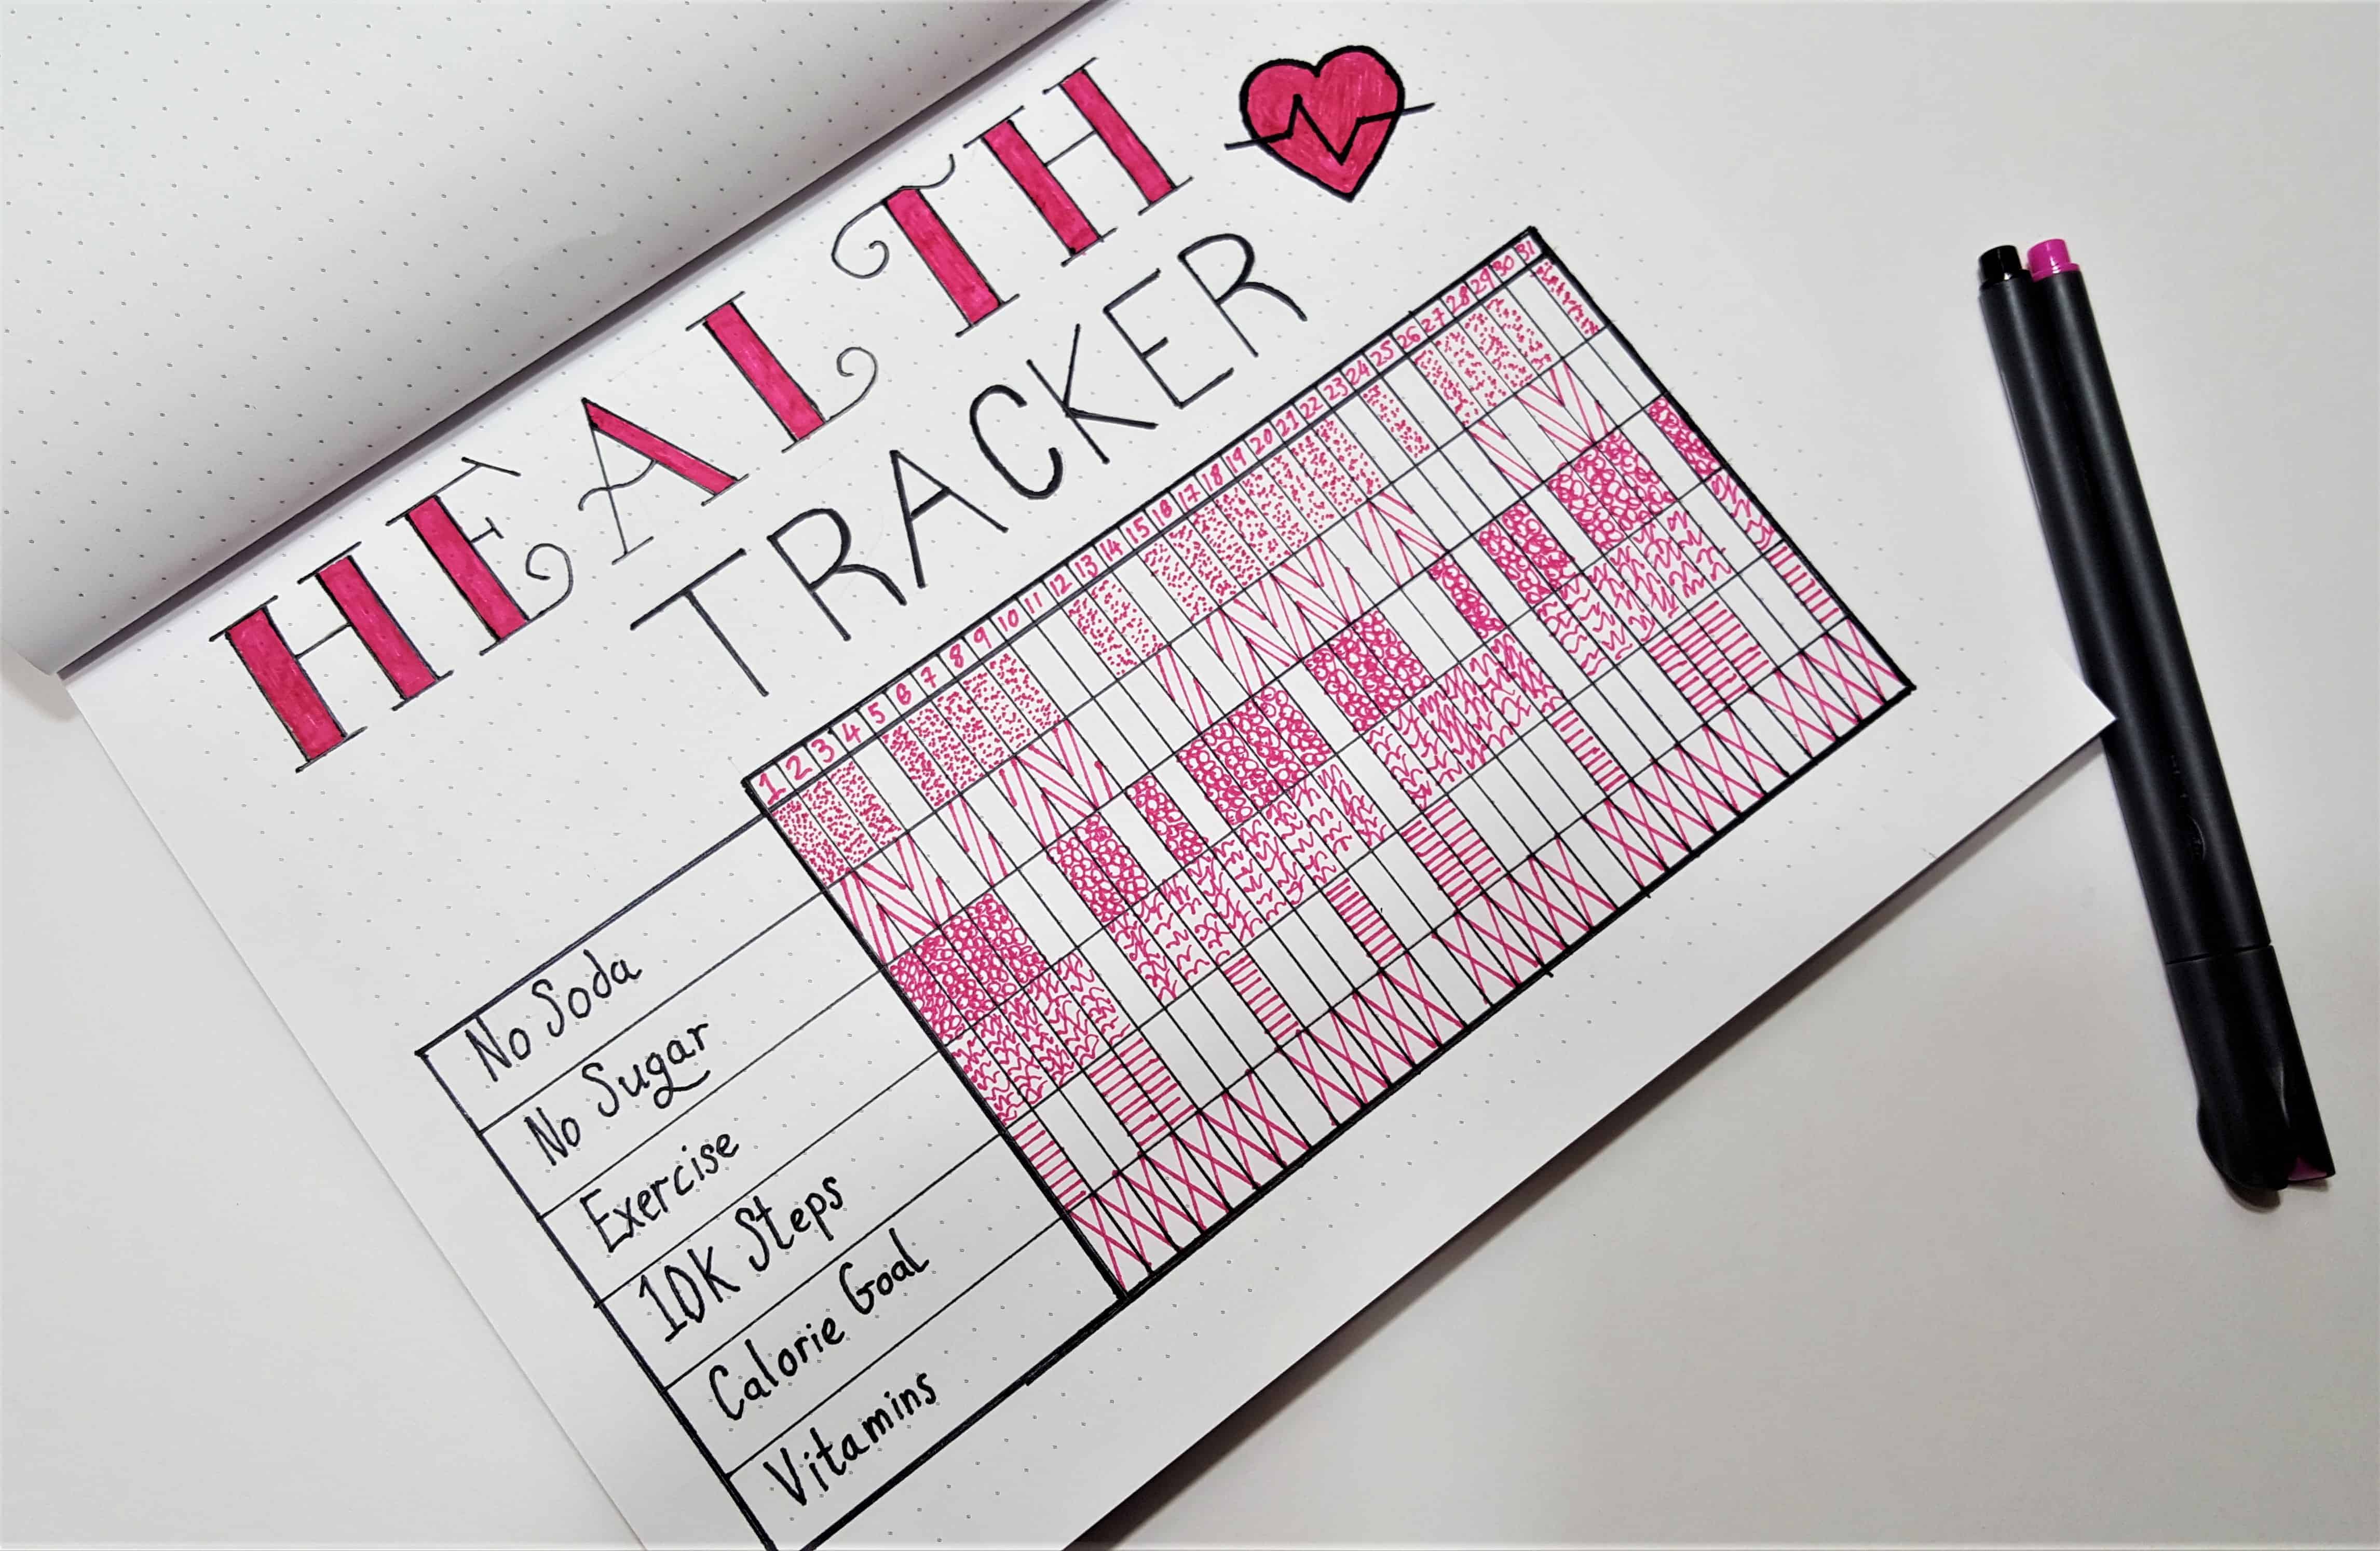 HEALTH
TRACKER
1 2 3 4 5 6 7 8 9 10 11 12 13 14 15 16 17 18 19 20 21 22 23 24 25 26 27 28 29 30 31
No Soda
No Sugar
Exercise
10K Steps
Calorie Goal
Vitamins